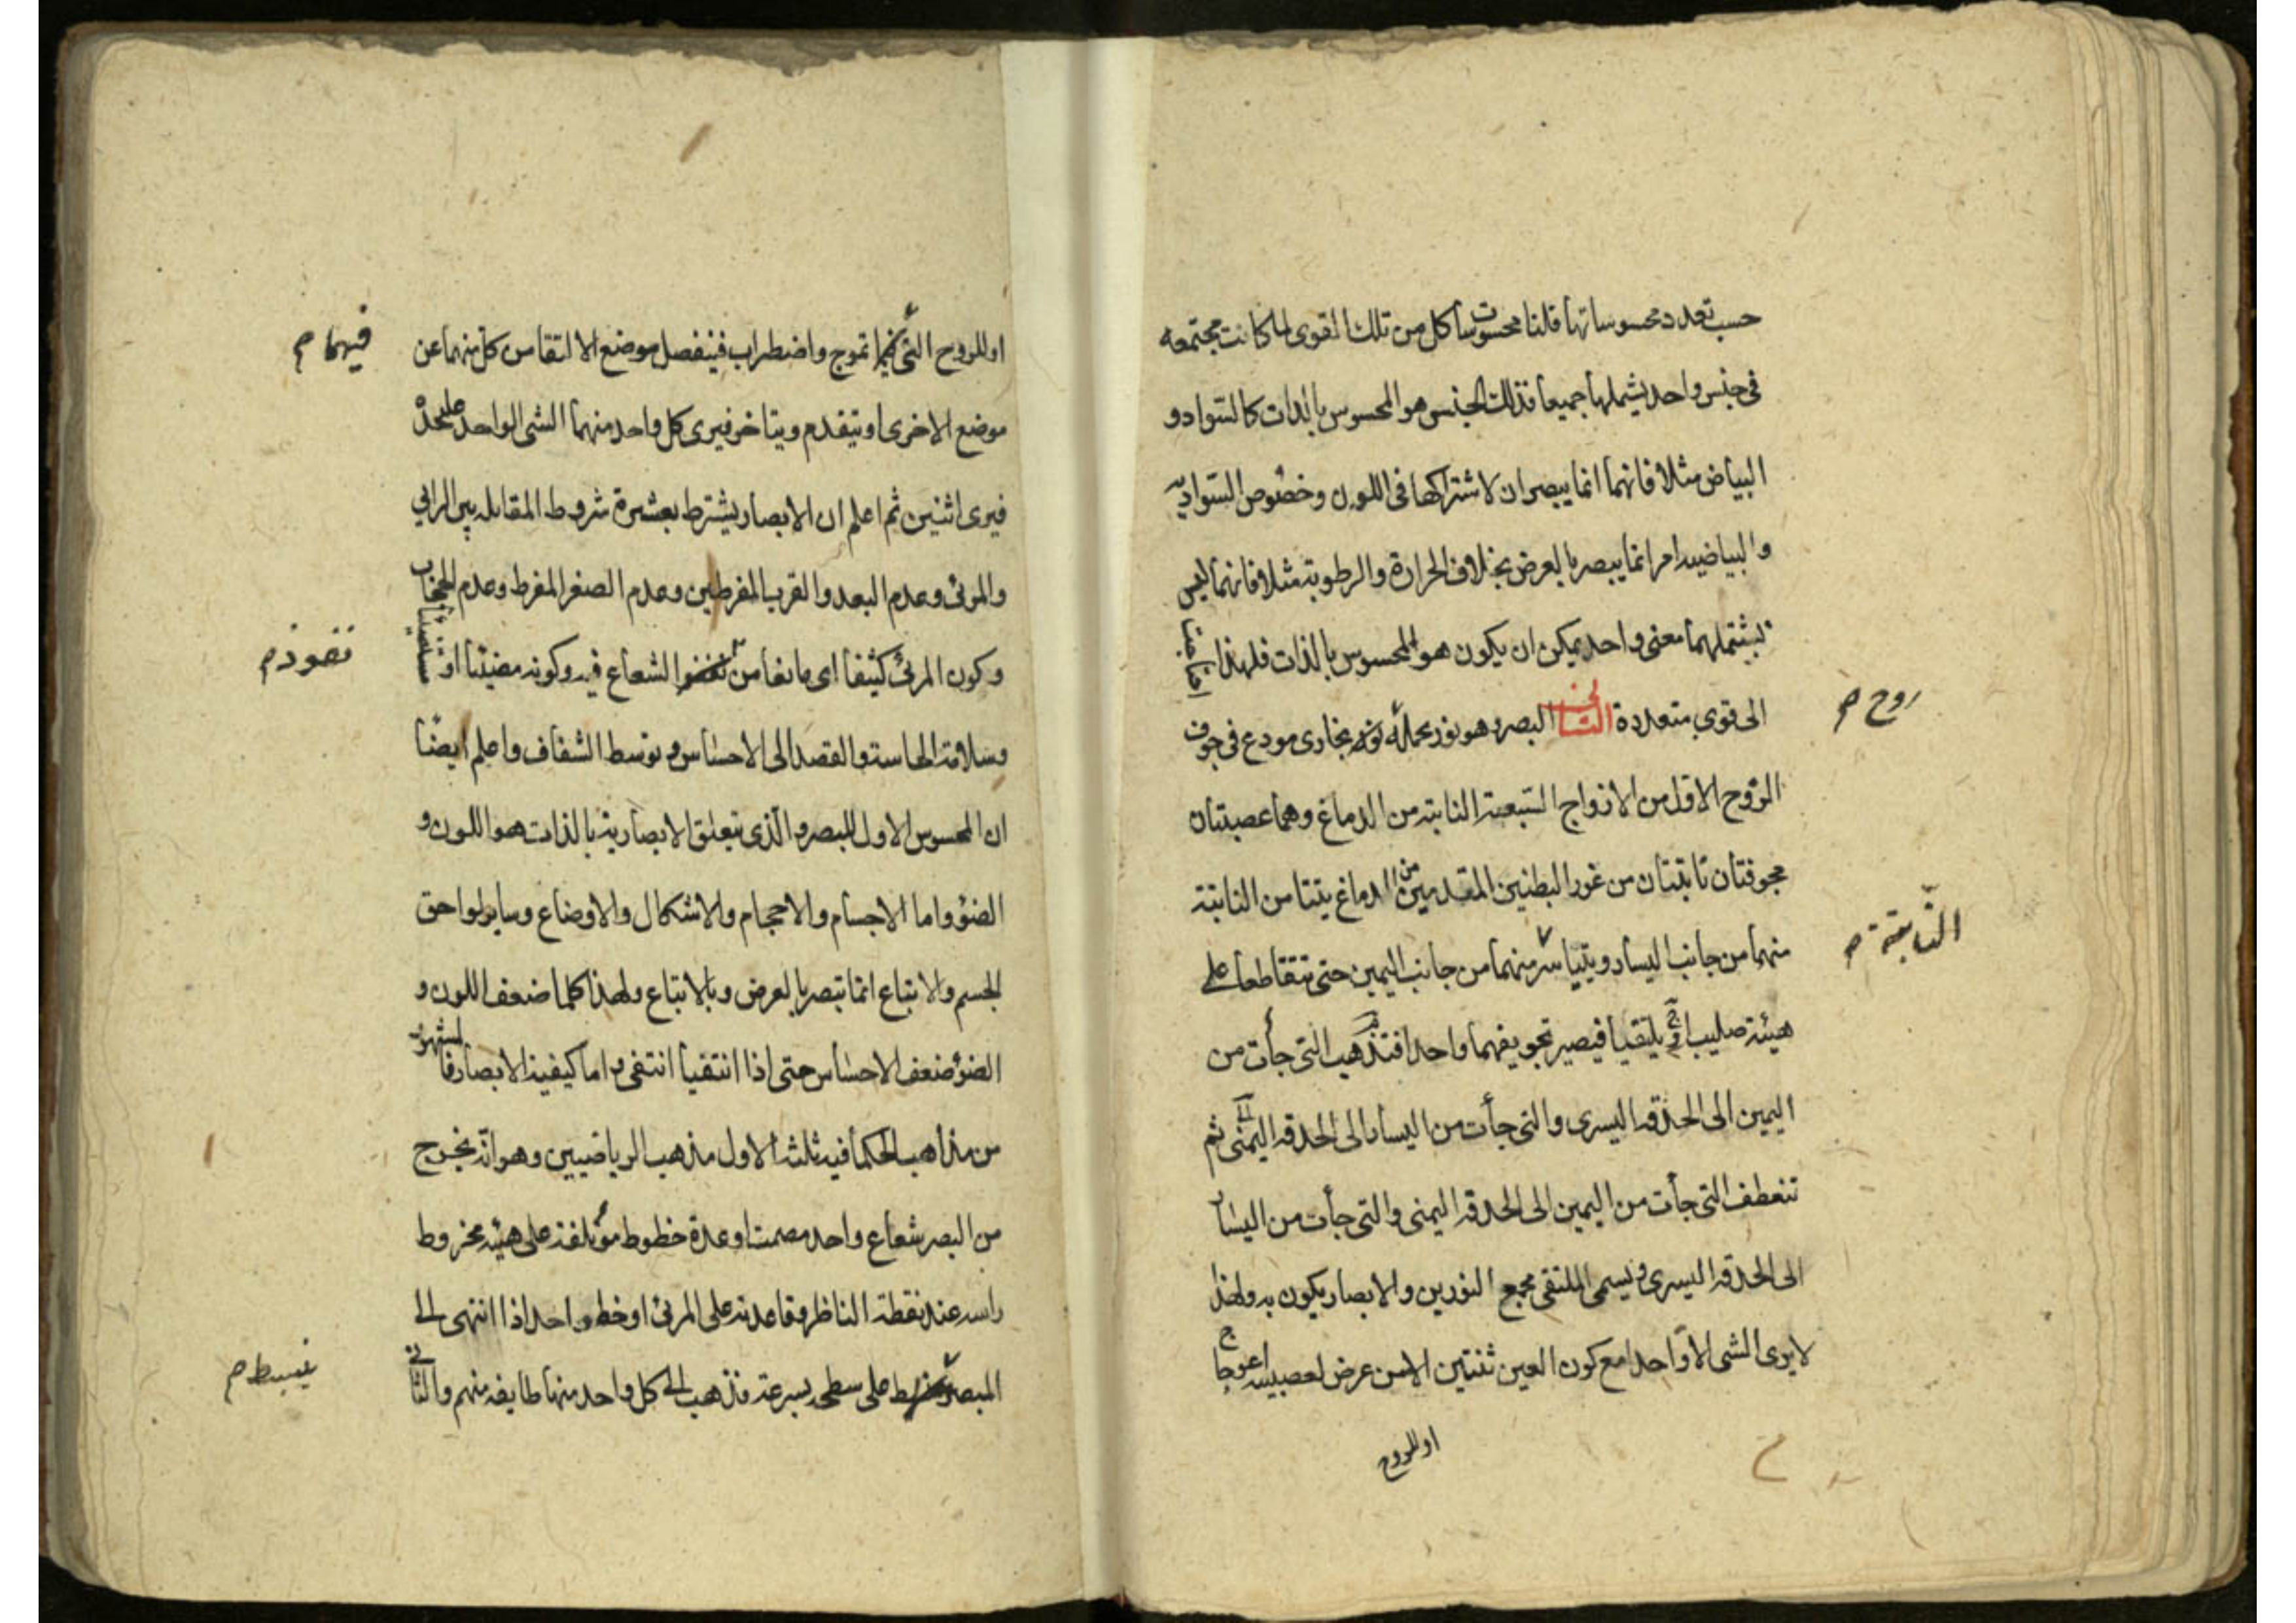 حسب تعدد محسوساتها قلنا محسوسات كل من تلك القوى لما كانت مجتمعه
فى جنس واحد يشملها جميعا فذلك الجنس هو المحسوس بالذات كالسواد و
البياض مثلا فانهما انما يبصران لاشتراكهما فى اللون وخصوص السوادية
والبياضية امر انما يبصر بالعرض بخلاف الحرارة والرطوبة مثلا فانهما ليس
يشتملهما معنى واحد يمكن ان يكون هو المحسوس بالذات فلهذا احتاجتا
الى قوى متعددة الثانى البصر وهو نور يحمله بخارى مودع فى جوف
روح م
الزوج الاول من الازواج السبعة النابتة من الدماغ وهما عصبتان
مجوفتان نابتتان من غور البطنين المقدمين من الدماغ يتيامن النابتة
منهما من جانب اليسار ويتياسر منهما من جانب اليمين حتى تتقاطعا على
النابتة م
هيئة صليب ثم يلتقيا فيصير تجويفهما واحدا فتذهب التى جأت من
اليمين الى الحدقه اليسرى والتى جأت من اليسار الى الحدقه اليمنى ثم
تنعطف التى جأت من اليمين الى الحدقه اليمنى والتى جأت من اليسار
الى الحدقه اليسرى ويسمى الملتقى مجمع النورين والابصار يكون به ولهذا
لا يرى الشى الا واحدا مع كون العين ثنتين الا من عرض لعصبيه اعوجاج
او للروح
او للروح التى تموج واضطراب فينفصل موضع الالتقا من كل منهما عن
فيهما م
موضع الاخرى او يتقدم ويتاخر فيرى كل واحد منهما الشى الواحد على حدة
فيرى اثنين ثم اعلم ان الابصار يشترط بعشرة شروط المقابله بين الرائى
والمرئى وعدم البعد والقرب المفرطين وعدم الصغر المفرط وعدم الحجاب
وكون المرئى كثيفا اى مانعا من الشعاع فيه وكونه مضيئا او مستضيئا
نفوذ م
وسلامة الحاسة والقصد الى الاحساس وتوسط الشفاف واعلم ايضا
ان المحسوس الاول للبصر والذى يتعلق الابصار به بالذات هو اللون و
الضؤ واما الاجسام والاحجام والاشكال والاوضاع وساير لواحق
الجسم والاتباع انما تبصر بالعرض وبالاتباع ولهذا كلما ضعف اللون و
الضؤ ضعف الاحساس حتى اذا انتفيا انتفى واما كيفية الابصار فالمشهور
من مذاهب الحكما فيه ثلثة الاول مذهب الرياضيين وهو انه يخرج
من البصر شعاع واحد مصمت او عدة خطوط مؤتلفة على هيئة مخروط
راسه عند نقطة الناظر وقاعدته على المرئى او خط واحد اذا انتهى الى
المبصر على سطحه بسرعة فذهب الى كل واحد منها طايفه منهم والثانى
ينبسط م